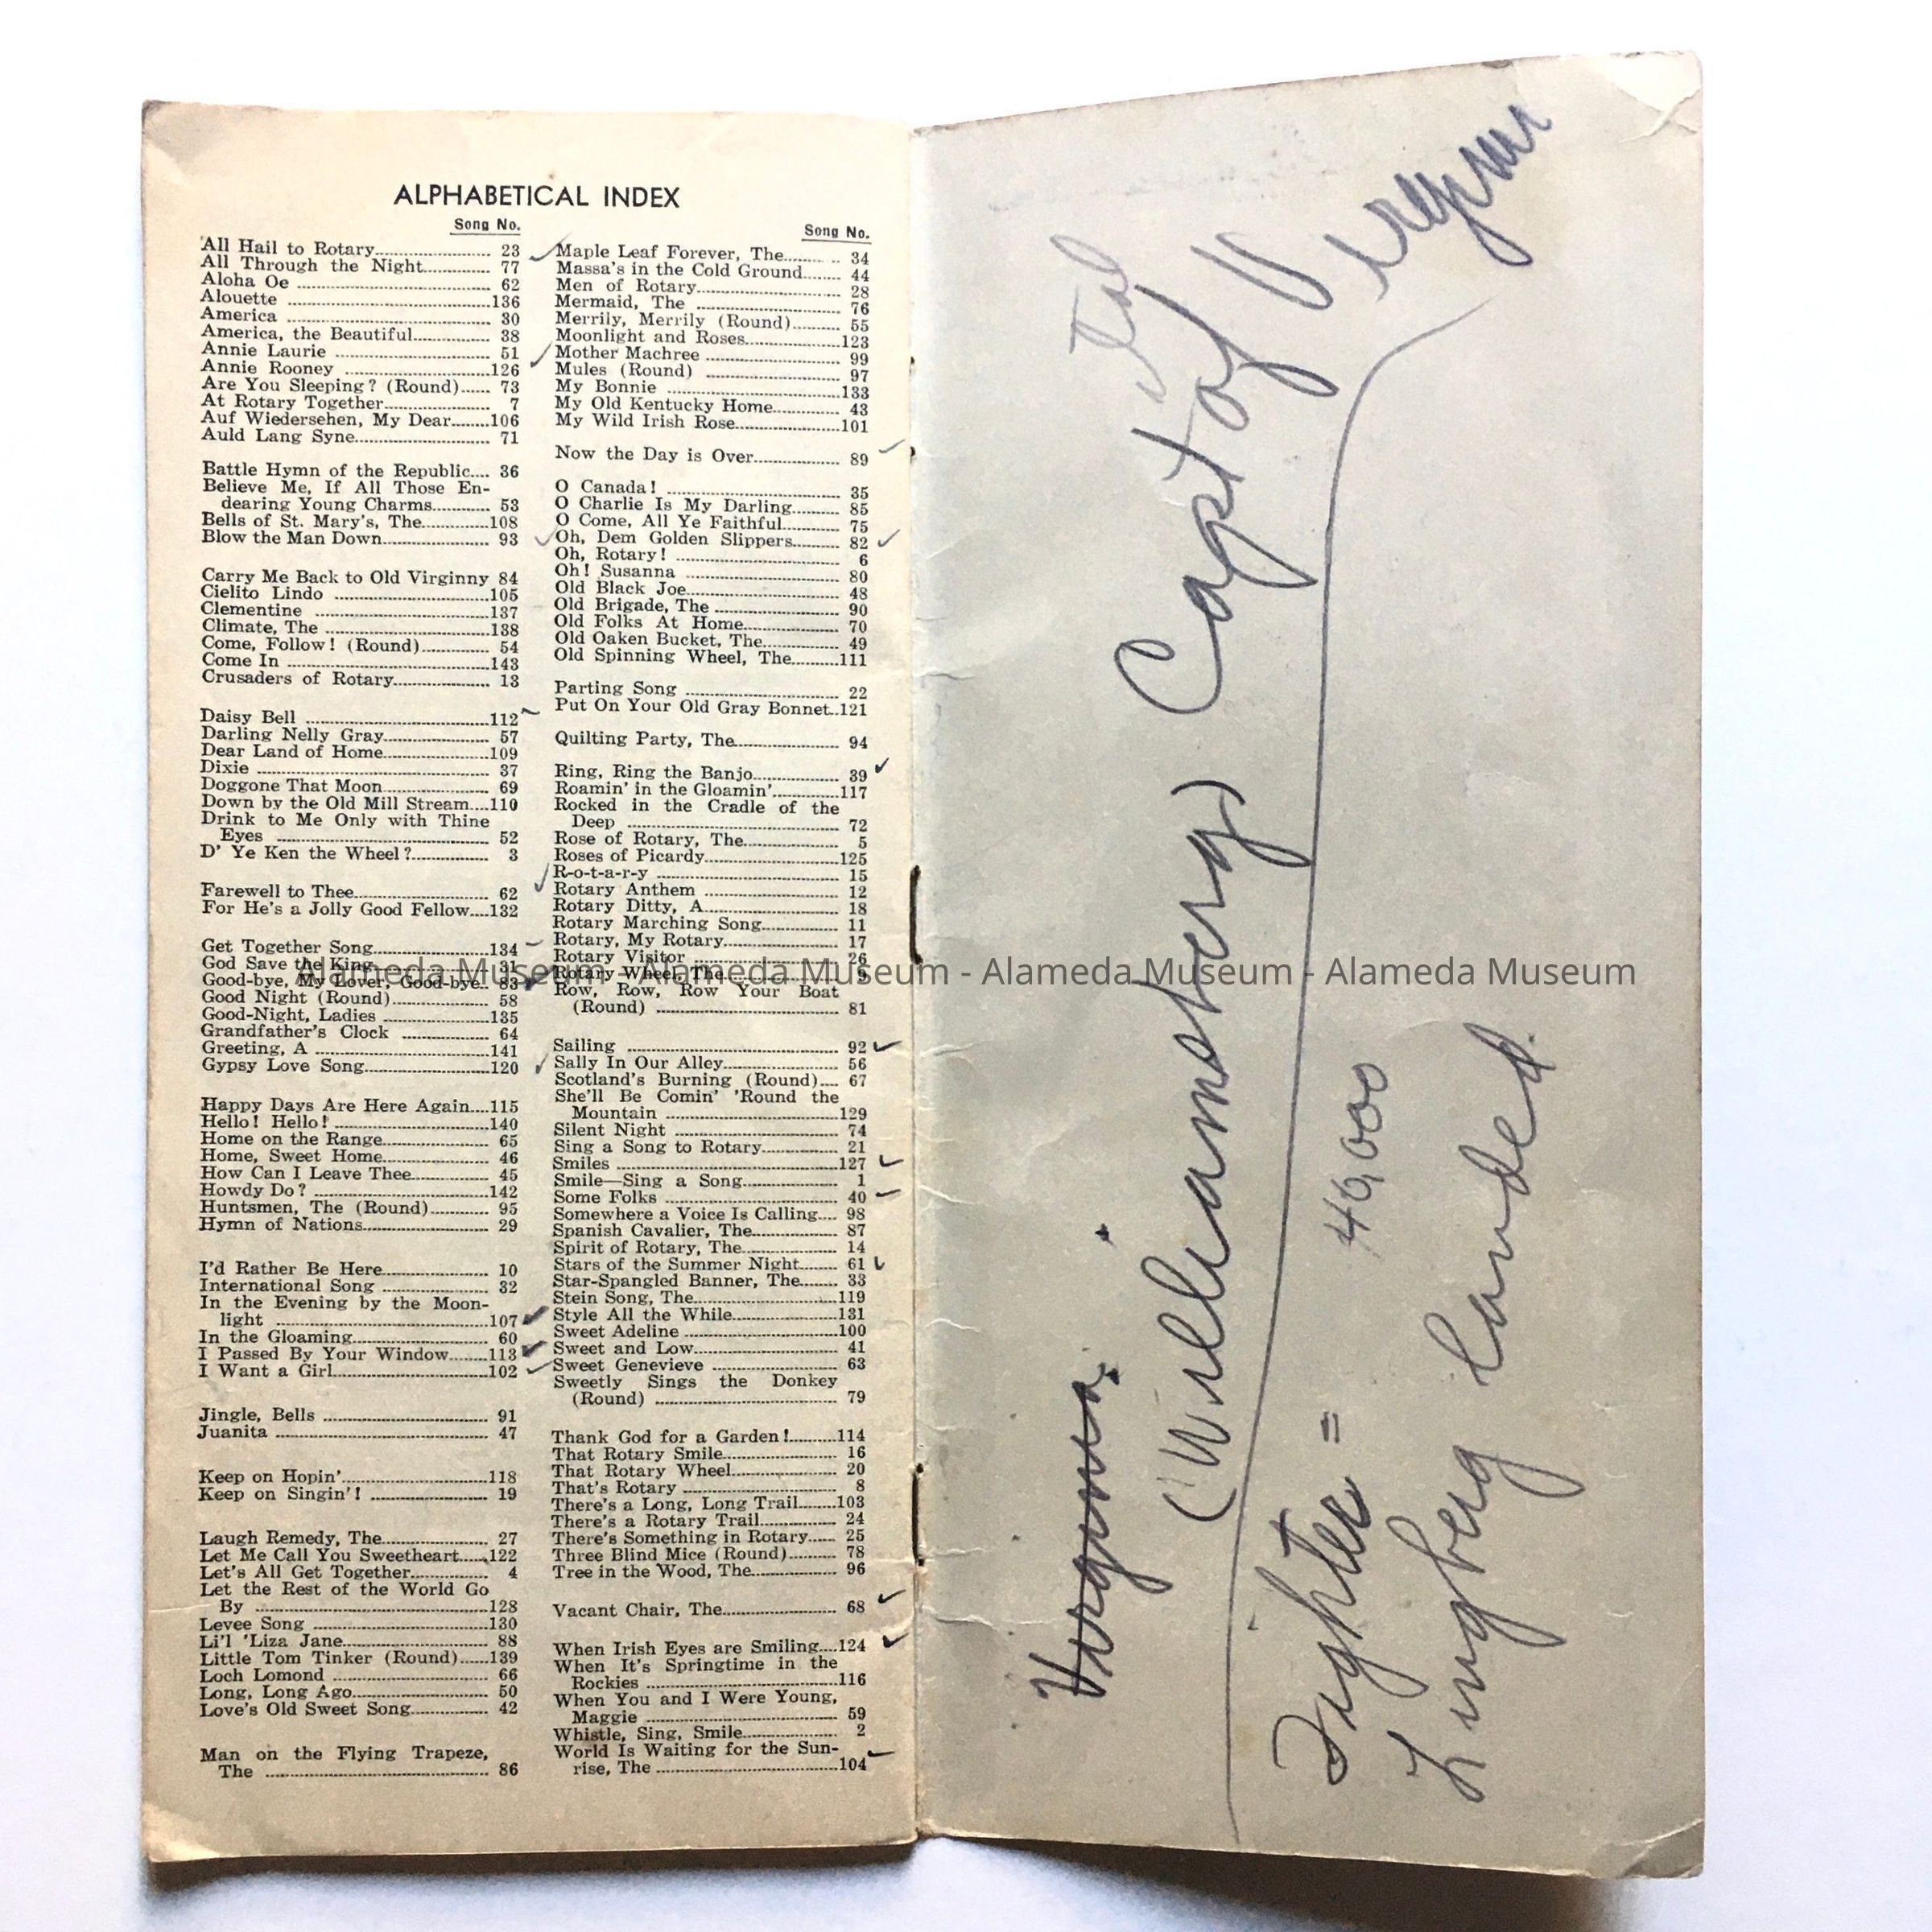 ALPHABETICAL INDEX
Song No.
All Hail to Rotary 23
All Through the Night 77
Aloha Oe 62
Alouette 136
America 30
America, the Beautiful 38
Annie Laurie 51
Annie Rooney 126
Are You Sleeping? (Round) 73
At Rotary Together 7
Auf Wiedersehen, My Dear 106
Auld Lang Syne 71
Battle Hymn of the Republic 36
Believe Me, If All Those En-
dearing Young Charms 53
Bells of St. Mary's, The 108
Blow the Man Down 93
Carry Me Back to Old Virginny 84
Cielito Lindo 105
Clementine 137
Climate, The 138
Come, Follow! (Round) 54
Come In 143
Crusaders of Rotary 13
Daisy Bell 112
Darling Nelly Gray 57
Dear Land of Home 109
Dixie 37
Doggone That Moon 69
Down by the Old Mill Stream 110
Drink to Me Only with Thine
Eyes 52
D' Ye Ken the Wheel? 3
Farewell to Thee 62
For He's a Jolly Good Fellow 132
Get Together Song 134
God Save the King 31
Good-bye, My Lover, Good-bye 83
Good Night (Round) 58
Good-Night, Ladies 135
Grandfather's Clock 64
Greeting, A 141
Gypsy Love Song 120
Happy Days Are Here Again 115
Hello! Hello! 140
Home on the Range 65
Home, Sweet Home 46
How Can I Leave Thee 45
Howdy Do? 142
Huntsmen, The (Round) 95
Hymn of Nations 29
I'd Rather Be Here 10
International Song 32
In the Evening by the Moon-
light 107
In the Gloaming 60
I Passed By Your Window 113
I Want a Girl 102
Jingle, Bells 91
Juanita 47
Keep on Hopin' 118
Keep on Singin'! 19
Laugh Remedy, The 27
Let Me Call You Sweetheart 122
Let's All Get Together 4
Let the Rest of the World Go
By 128
Levee Song 130
Li'l 'Liza Jane 88
Little Tom Tinker (Round) 139
Loch Lomond 66
Long, Long Ago 50
Love's Old Sweet Song 42
Man on the Flying Trapeze,
The 86
Song No.
Maple Leaf Forever, The 34
Massa's in the Cold Ground 44
Men of Rotary 28
Mermaid, The 76
Merrily, Merrily (Round) 55
Moonlight and Roses 123
Mother Machree 99
Mules (Round) 97
My Bonnie 133
My Old Kentucky Home 43
My Wild Irish Rose 101
Now the Day is Over 89
O Canada! 35
O Charlie Is My Darling 85
O Come, All Ye Faithful 75
Oh, Dem Golden Slippers 82
Oh, Rotary! 6
Oh! Susanna 80
Old Black Joe 48
Old Brigade, The 90
Old Folks At Home 70
Old Oaken Bucket, The 49
Old Spinning Wheel, The 111
Parting Song 22
Put On Your Old Gray Bonnet 121
Quilting Party, The 94
Ring, Ring the Banjo 39
Roamin' in the Gloamin' 117
Rocked in the Cradle of the
Deep 72
Rose of Rotary, The 5
Roses of Picardy 125
R-o-t-a-r-y 15
Rotary Anthem 12
Rotary Ditty, A 18
Rotary Marching Song 11
Rotary, My Rotary 17
Rotary Visitor 26
Rotary Wheel, The 9
Row, Row, Row Your Boat
(Round) 81
Sailing 92
Sally In Our Alley 56
Scotland's Burning (Round) 67
She'll Be Comin' 'Round the
Mountain 129
Silent Night 74
Sing a Song to Rotary 21
Smiles 127
Smile—Sing a Song 1
Some Folks 40
Somewhere a Voice Is Calling 98
Spanish Cavalier, The 87
Spirit of Rotary, The 14
Stars of the Summer Night 61
Star-Spangled Banner, The 33
Stein Song, The 119
Style All the While 131
Sweet Adeline 100
Sweet and Low 41
Sweet Genevieve 63
Sweetly Sings the Donkey
(Round) 79
Thank God for a Garden! 114
That Rotary Smile 16
That Rotary Wheel 20
That's Rotary 8
There's a Long, Long Trail 103
There's a Rotary Trail 24
There's Something in Rotary 25
Three Blind Mice (Round) 78
Tree in the Wood, The 96
Vacant Chair, The 68
When Irish Eyes are Smiling 124
When It's Springtime in the
Rockies 116
When You and I Were Young,
Maggie 59
Whistle, Sing, Smile 2
World Is Waiting for the Sun-
rise, The 104
(Williamsberg) Capt of Virginia
Fighter = 40,000
landed
Alameda Museum - Alameda Museum - Alameda Museum - Alameda Museum